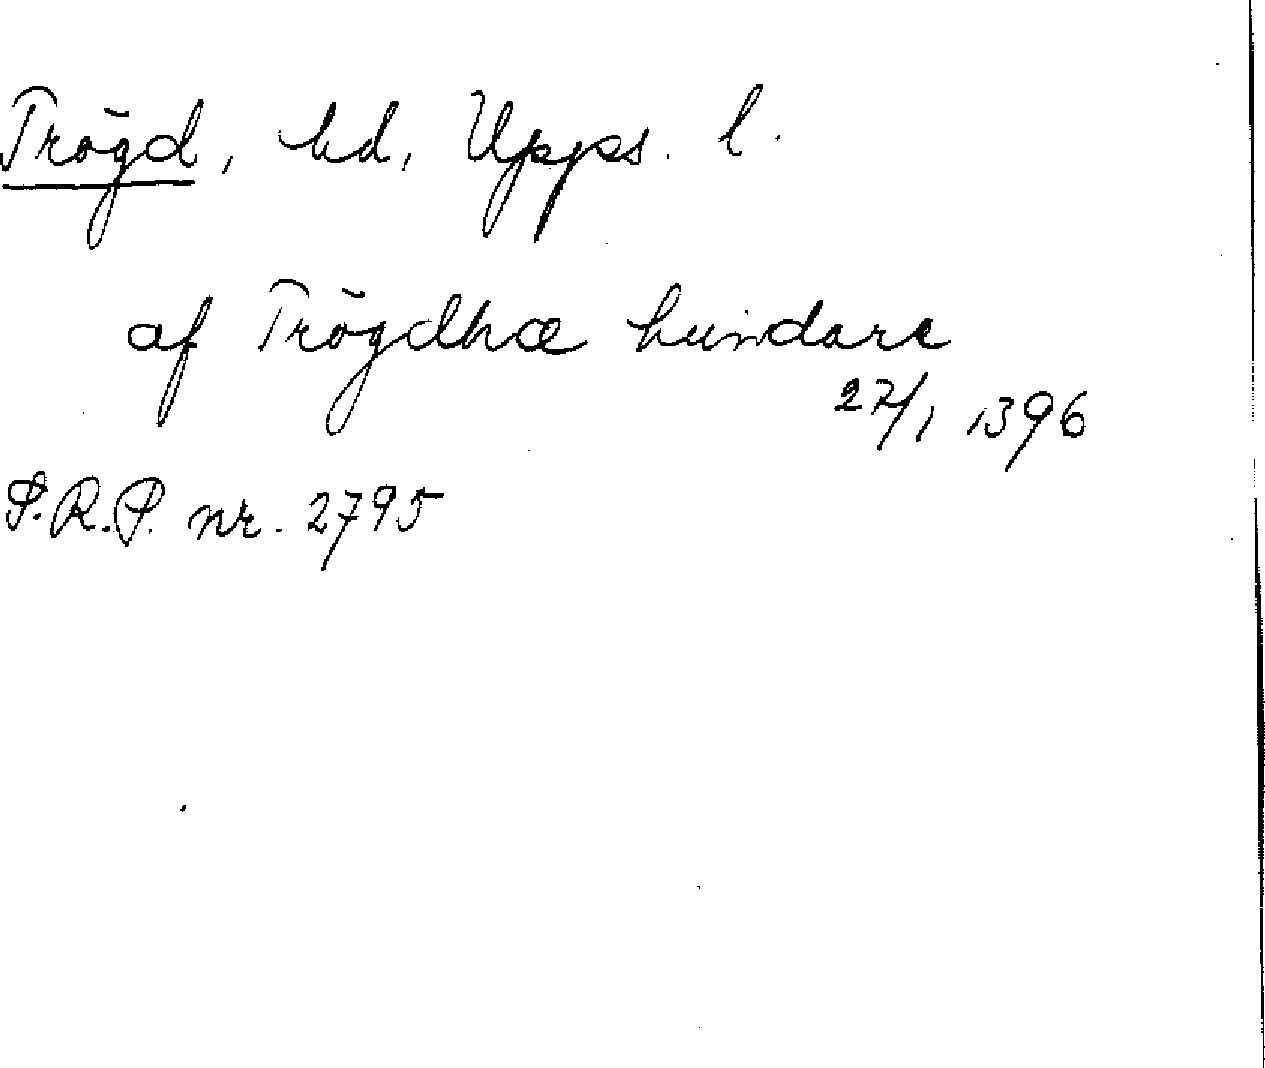 Trögd, hd, Upps. l.
af Trögdhæ hundare
27/1 1396
S.R.P. nr. 2795